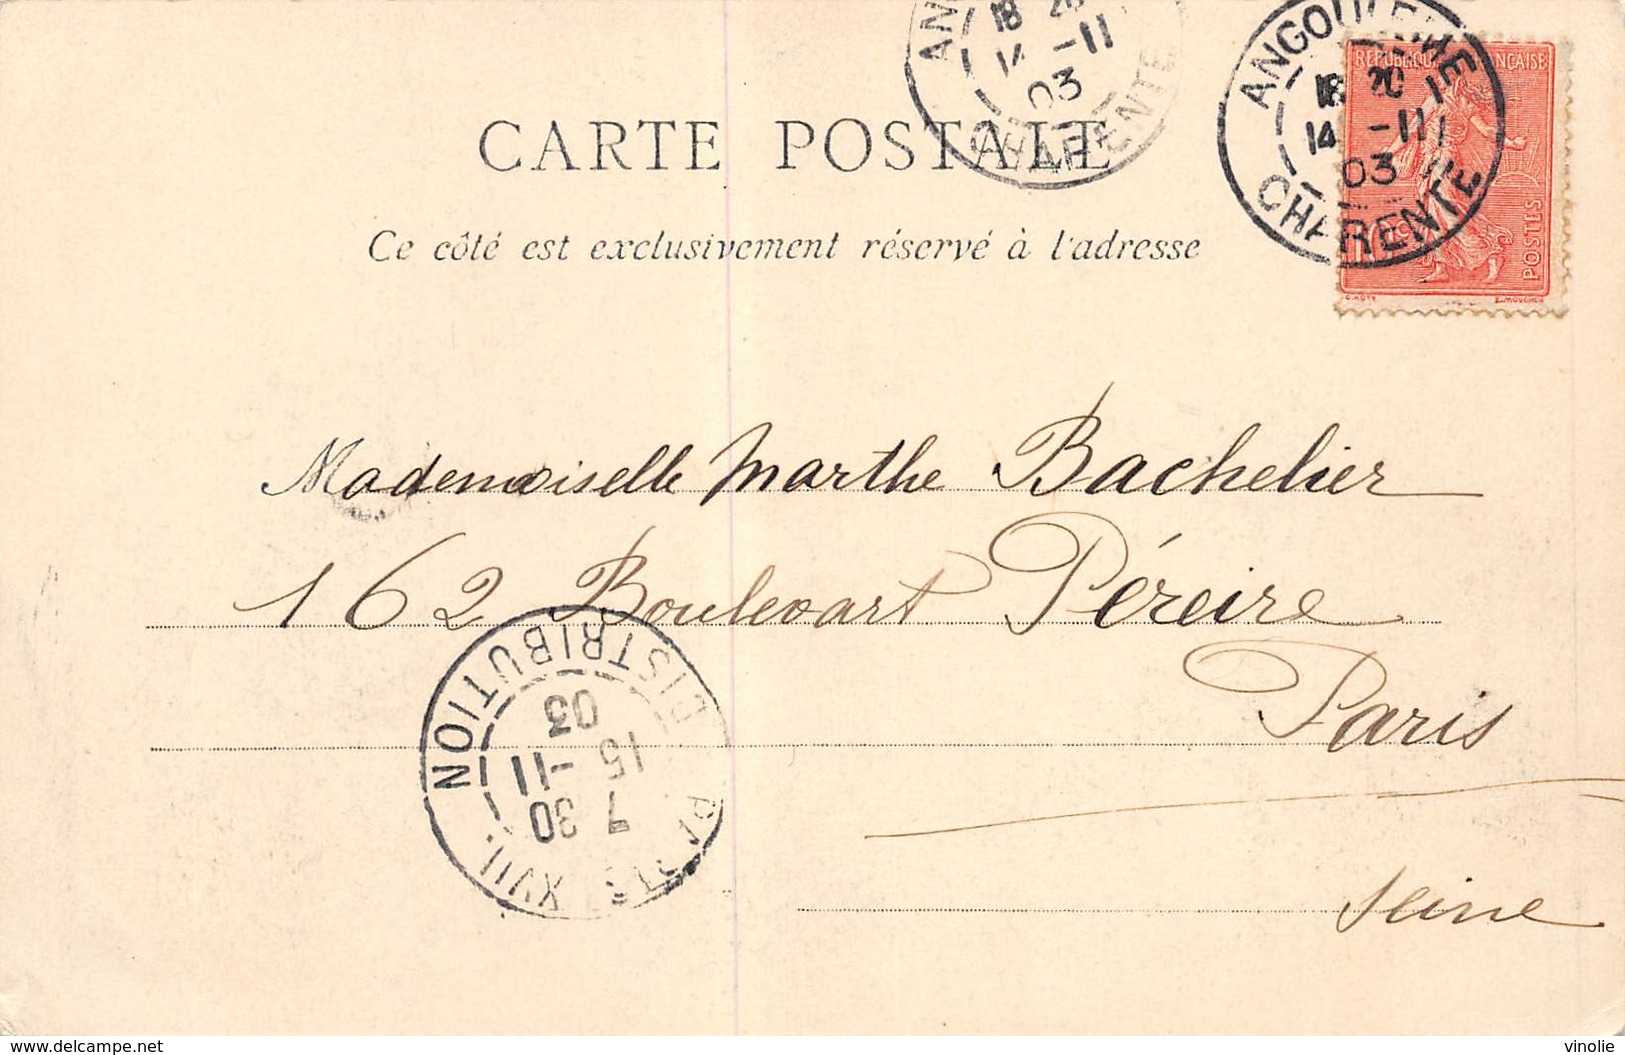 ANGOULEME
18 20
14 -11
03
CHARENTE
REPUBLIQUE FRANÇAISE
POSTES
10
O.ROTY
E.MOUCHON
18 20
14 -11
03
CHARENTE
CARTE POSTALE
Ce côté est exclusivement réservé à l'adresse
Mademoiselle Marthe Bachelier
162 Boulevart Péreire
Paris
Seine
PARIS XVII
7 30
15 -11
03
DISTRIBUTION
delcampe.net
vinolie